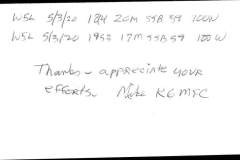 W5L 5/3/20 20M SSB 59 100W
W5L 5/3/20 1953 17M SSB 59 100W
Thanks - appreciate your
efforts. Mike K6MFC